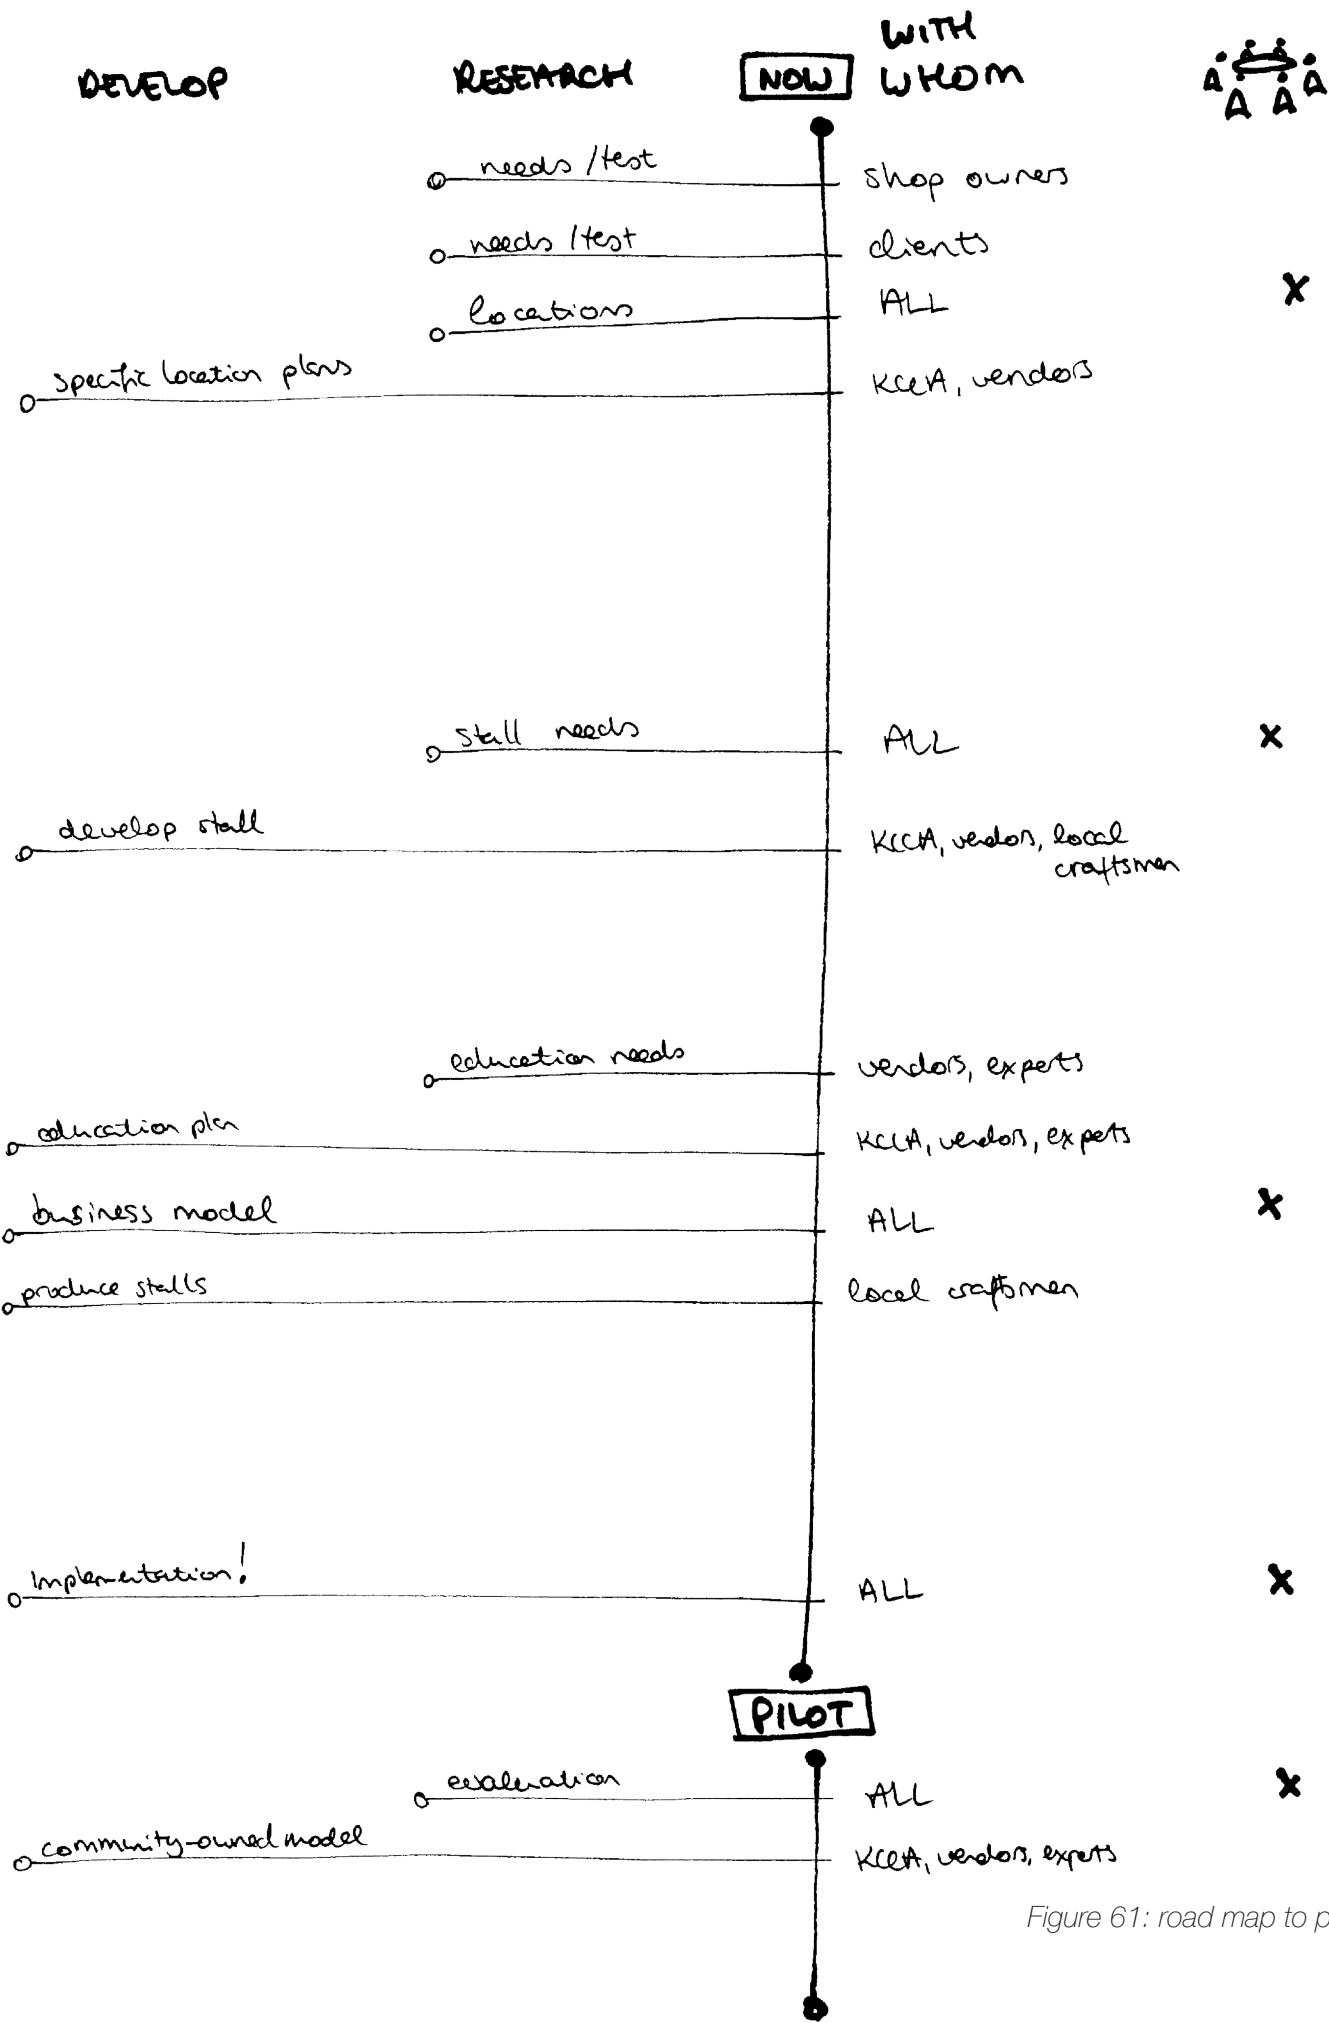 WITH
DEVELOP RESEARCH NOW WHOM
needs / test shop owners
needs / test clients
locations ALL
specific location plans KCCA, vendors
stall needs ALL
develop stall KCCA, vendors, local
craftsmen
education needs vendors, experts
education plan KCCA, vendors, experts
business model ALL
produce stalls local craftsmen
Implementation! ALL
PILOT
evaluation ALL
community-owned model KCCA, vendors, experts
Figure 61: road map to p